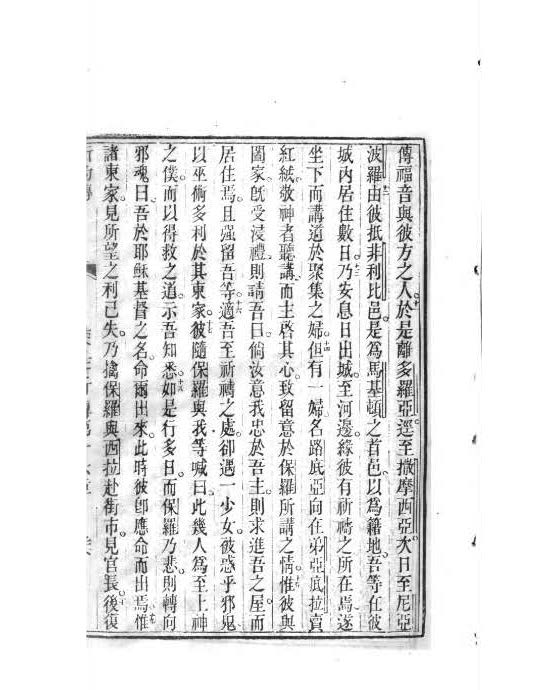 傳福音與彼方之人。於是離多羅亞逕至撒摩西亞。次日至尼亞
波羅。由彼抵非利比邑。是為馬基頓之首邑。以為籍地。吾等在彼
城內居住數日。乃安息日出城至河邊。緣彼有祈禱之所在焉。遂
坐下而講道於聚集之婦。但有一婦名路底亞。向在弟亞底拉賣
紅絨。敬神者聽講。而主啓其心。致留意於保羅所講之情。惟彼與
闔家旣受浸禮。則請吾曰。倘汝意我忠於吾主。則求進吾之屋而
居住焉。且强留吾等。適吾至祈禱之處。卻遇一少女。彼惑乎邪鬼。
以巫術多利於其東家。彼隨保羅與我等喊曰。此幾人為至上神
之僕。而以得救之道示吾知悉。如是行多日。而保羅乃悲。則轉向
邪魂曰。吾於耶穌基督之名。命爾出來。此時彼卽應命而出焉。惟
諸東家見所望之利已失。乃擒保羅與西拉赴街市。見官長。後復